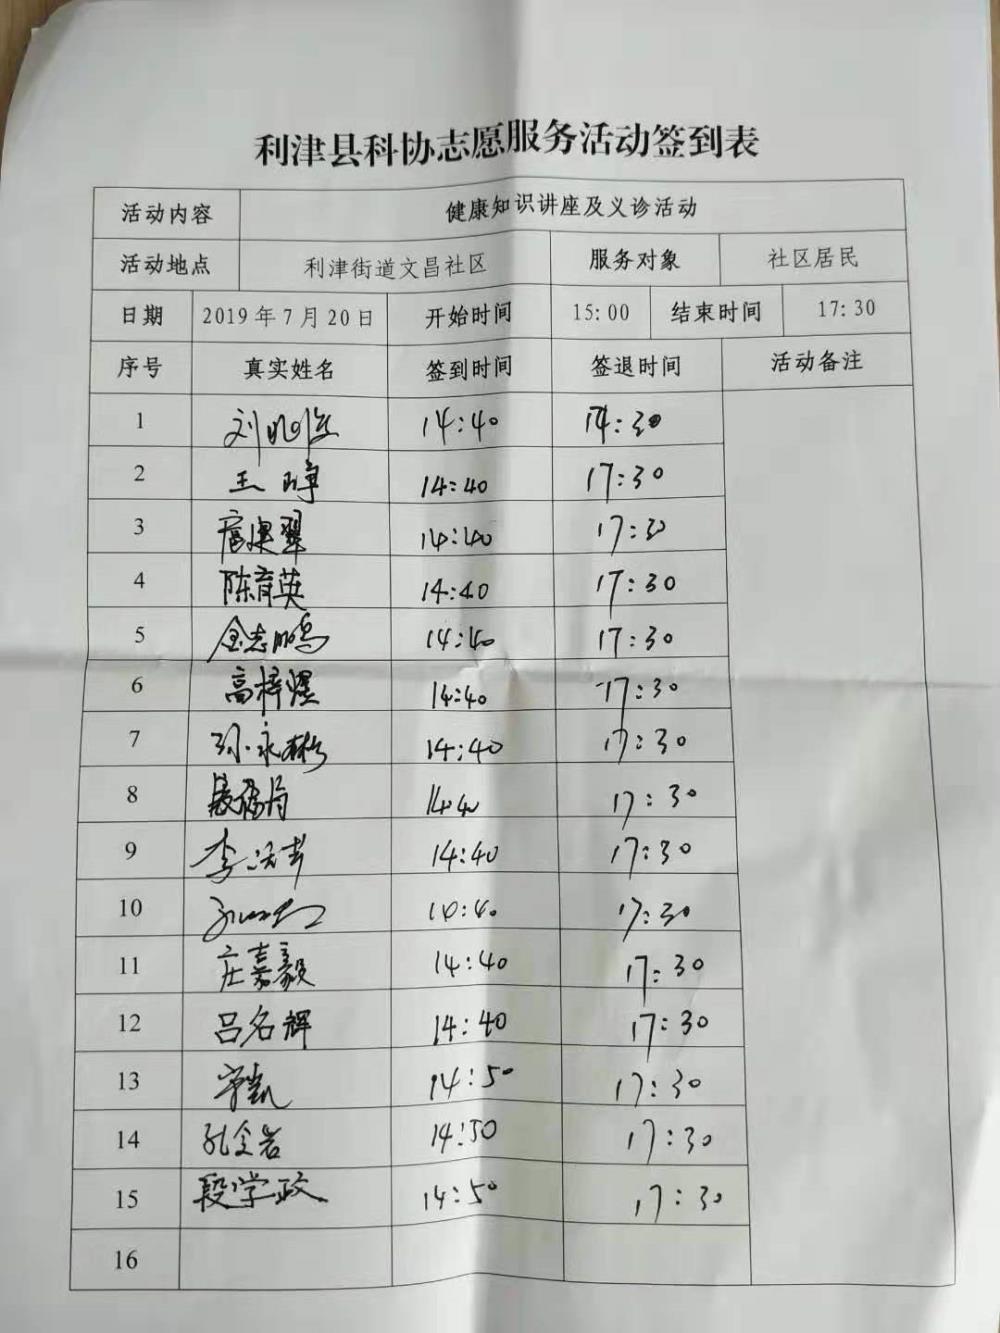 利津县科协志愿服务活动签到表
活动内容 健康知识讲座及义诊活动
活动地点 利津街道文昌社区 服务对象 社区居民
日期 2019年7月20日 开始时间 15:00 结束时间 17:30
序号 真实姓名 签到时间 签退时间 活动备注
1 刘 14:40 :30
2 王 14:40 17:30
3 14:40 17:30
4 陈育英 14:40 17:30
5 金志鹏 14:40 17:30
6 高梓煜 14:40 17:30
7 孙永彬 14:40 17:30
8 17:30
9 李 14:40 17:30
10 17:30
11 庄嘉毅 14:40 17:30
12 吕名辉 14:40 17:30
13 14:50 17:30
14 孔令岩 14:50 17:30
15 段学政 14:50 17:30
16